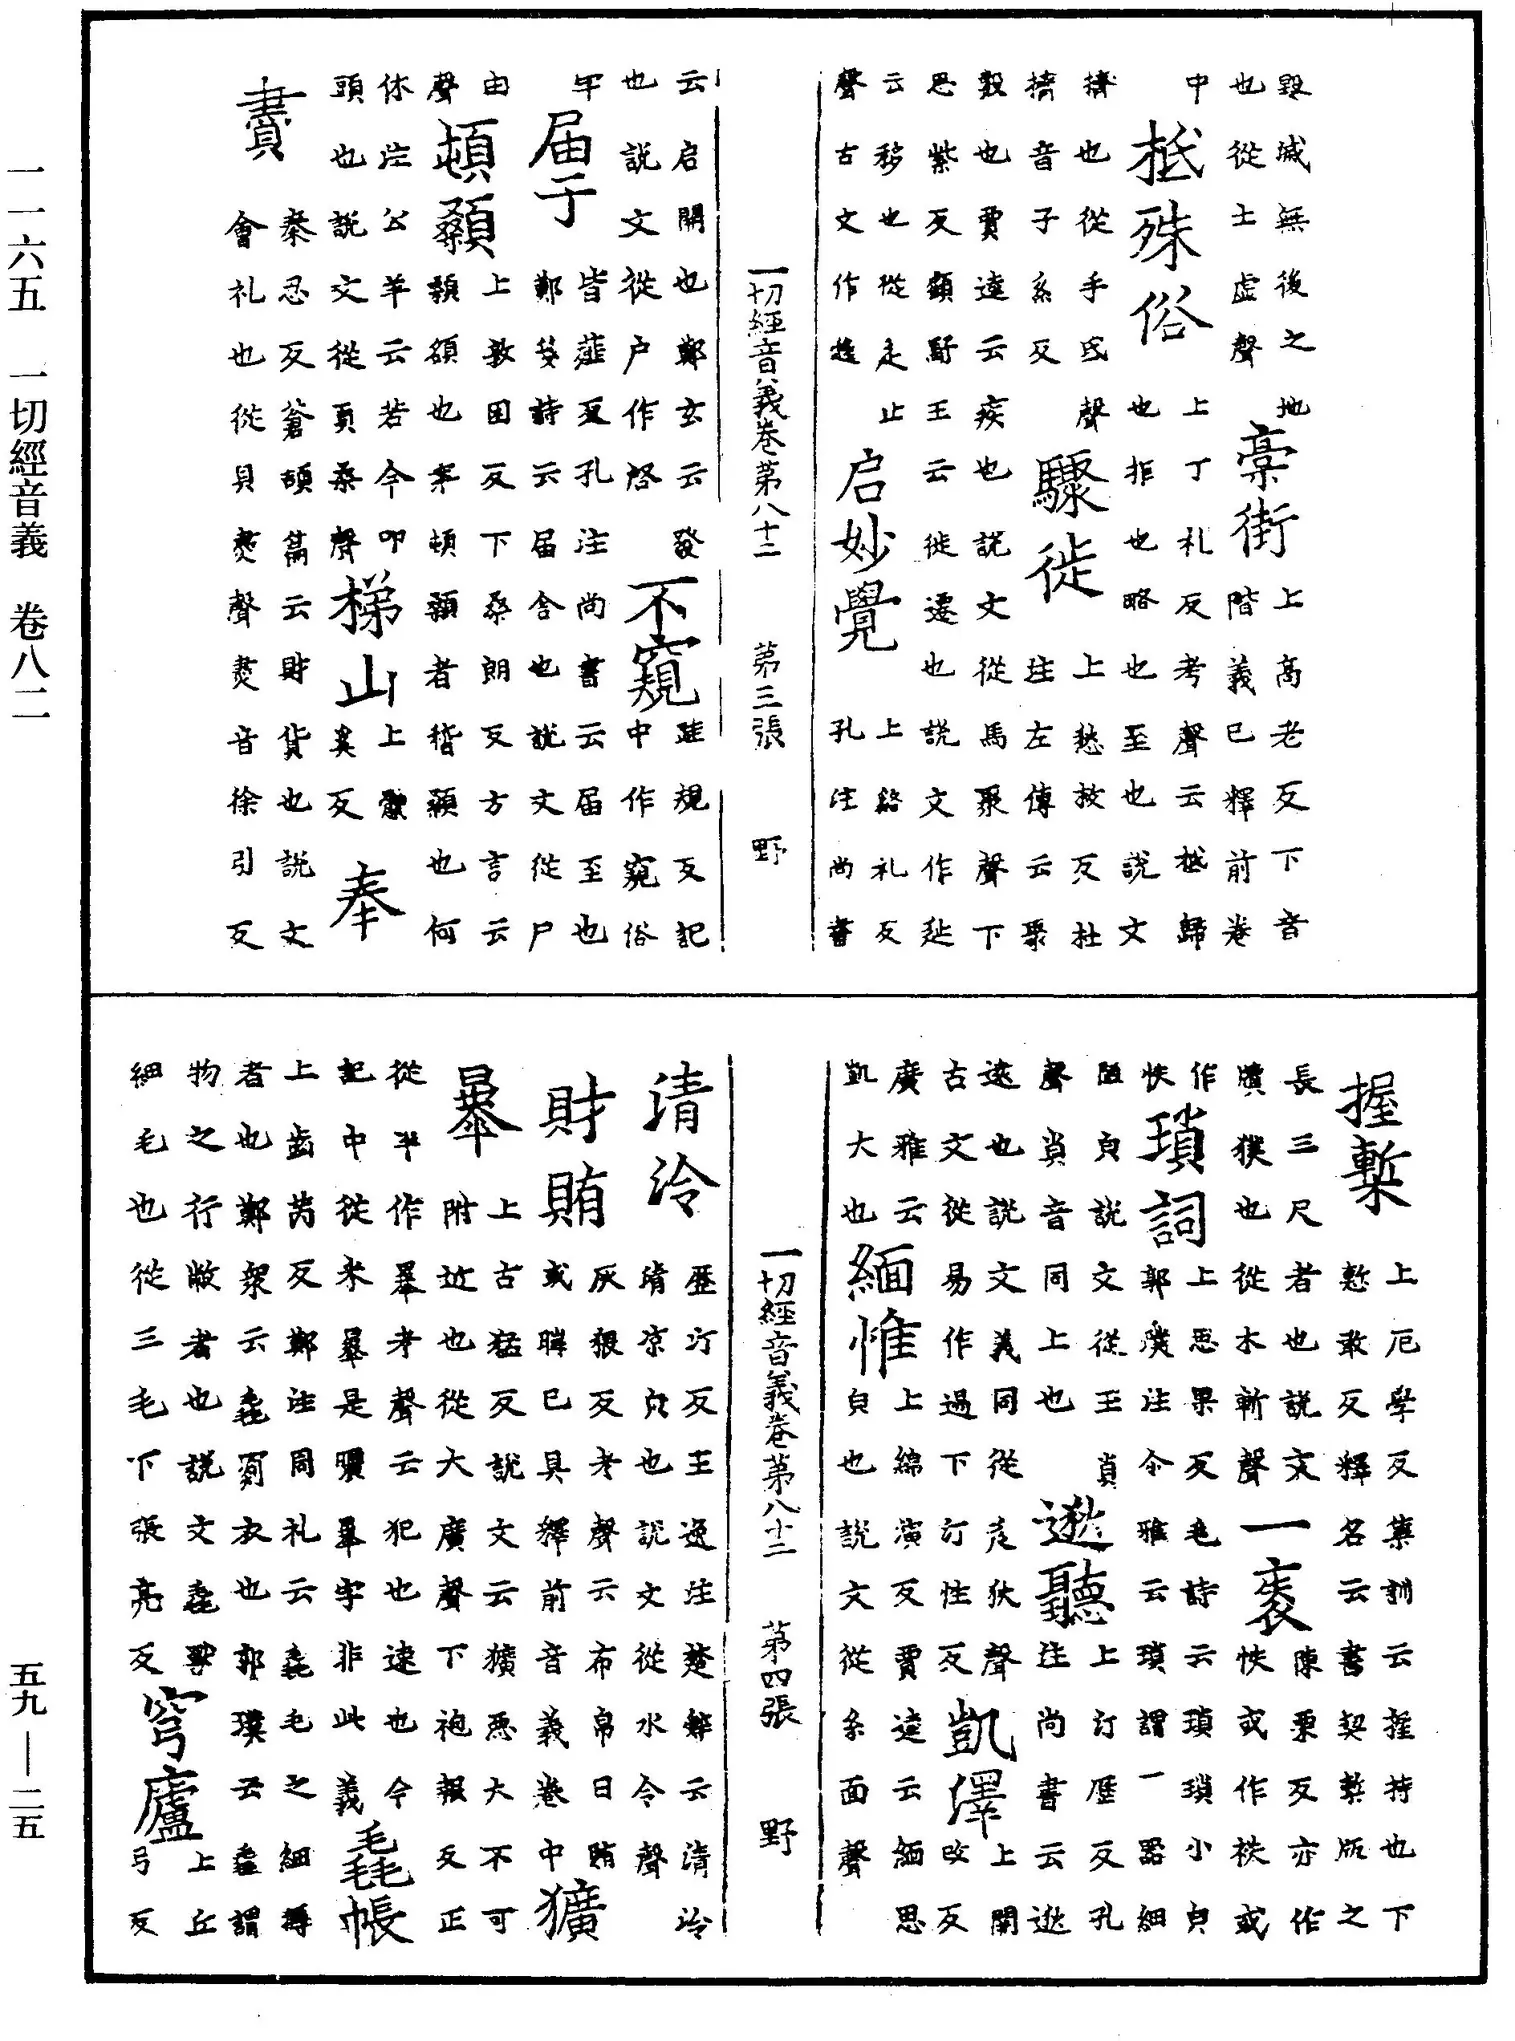 毀滅無後之地
也從士虛聲
槀街
上高老反下音
階義已釋前卷
中
抵殊俗
上丁礼反考聲云抵歸
也拒也略也至也說文
擠也從手氐聲
擠音子系反
驟徙
上愁救反杜
注左傳云聚
數也賈逵云疾也說文從馬聚聲下
思紫反顧野王云徙遷也說文作辿
云移也從辵止
聲古文作
启妙覺
上谿礼反
孔注尚書
一切經音義卷第八十二 第三張 野
云启開也鄭玄云發
也說文從户作啓
不窺
跬規反記
中作窺俗
牢
届于
皆薤反孔注尚書云届至也
鄭箋詩云届舍也說文從尸
由
聲
頓顙
上敦困反下桑朗反方言云
顙頟也案頓顙者稽顙也何
休注公羊云若今叩
頭也說文從頁桑聲
梯山
上體
奚反
奉
賮
秦忍反蒼頡篇云財貨也說文
會礼也從貝㶳聲㶳音徐引反
握槧
上厄學反集訓云握持也下
慙敢反釋名云書契槧版之
長三尺者也說文
牘樸也從木斬聲
一袠
陳栗反亦作
帙或作袟或
作
帙
瑣詞
上思果反毛詩云瑣瑣小皃
郭璞注尒雅云瑣謂一器細
陋皃說文從王𧴪
聲𧴪音同上也
逖聽
上汀歷反孔
注尚書云逖
遠也說文義同從辵狄聲
古文從易作逷下汀性反
凱澤
上開
改反
廣雅云
凱大也
緬惟
上綿演反賈逵云緬思
皃也說文從糸面聲
一切經音義卷第八十二 第四張 野
清泠
歷汀反王逸注楚辭云清泠
清凉皃也說文從水令聲
財賄
灰猥反考聲云布帛曰賄
或晦已具釋前音義卷中
獷
㬥
上古猛反說文云獷惡犬不可
附近也從犬廣聲下袍報反正
從夲作㬥考聲云犯也速也今
記中從米暴是曝㬥字非此義
毳帳
上齒芮反鄭注周礼云毳毛之細縟
者也鄭衆云毳罽衣也郭璞云毳謂
物之行敝者也說文毳獸
細毛也從三毛下張亮反
穹廬
上丘
弓反
一一六五 一切經音義 卷八二
五九—二五